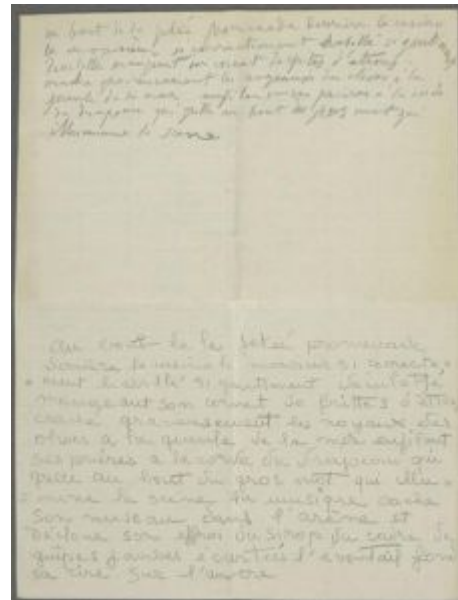 au bout de la jetée promenade derrière le casino
le monsieur si correctement habillé si gentiment
culotté mangeant son cornet de frites d'étrons
crache gracieusement les noyaux des olives à la
gueule de la mer enfilant ses prières à la corde
du drapeau qui grille au bout du gros mot qui
illumine la scène
au bout de la jetée promenade
derrière le casino le monsieur si correcte-
ment habillé si gentiment déculotté
mangeant son cornet de frittes d'étrons
crache gracieusement les noyaux des
olives à la gueule de la mer enfilant
ses prières à la corde du drapeau qui
grille au bout du gros mot qui illu-
mine la scène la musique cache
son museau dans l'arène et
décloue son effroi du
guêpes jambes écartées l'éventail fond
sa cire sur l'ancre